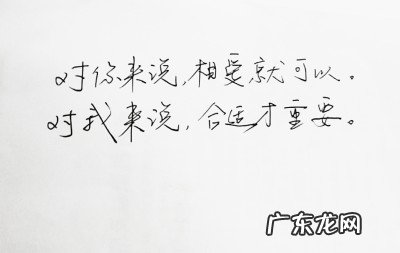 对你来说,相爱就可以。
对我来说,合适才重要。
广东龙网